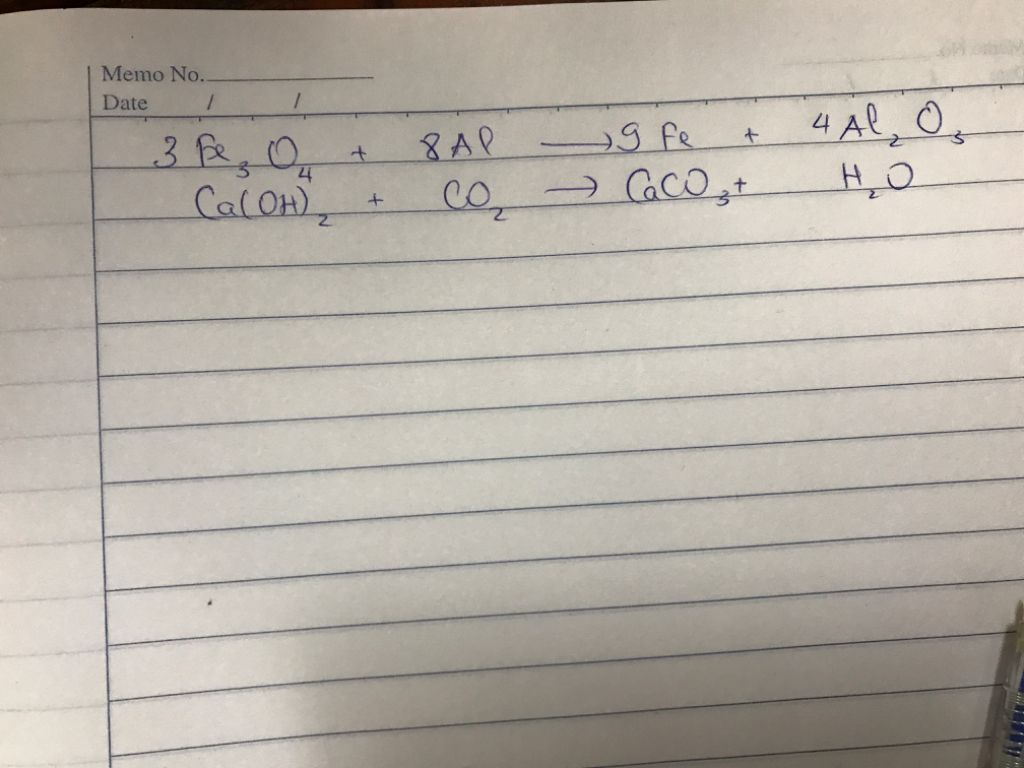 Memo No.
Date / /
3 Fe₃O₄ + 8Al → 9 Fe + 4 Al₂O₃
Ca(OH)₂ + CO₂ → CaCO₃ + H₂O